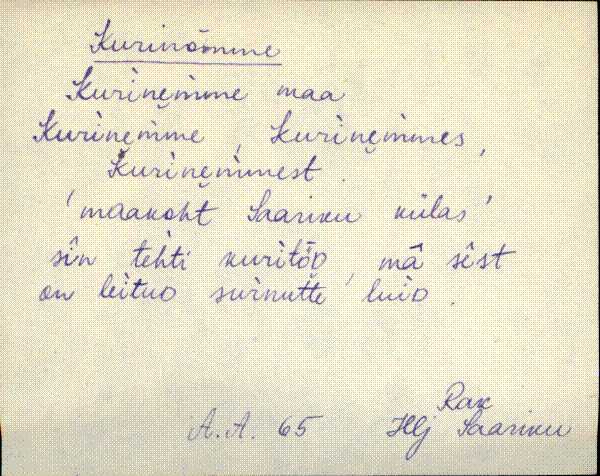 Kurinõmme
Kurinẹmme maa
Kurinẹmme, Kurinẹmmes,
Kurinẹmmest.
'maakoht Saariku külas'
sîn tehti kuritȫD, mā sêst
on leituD surnutte luiD.
Rak
A.A. 65 Hlj Saariku